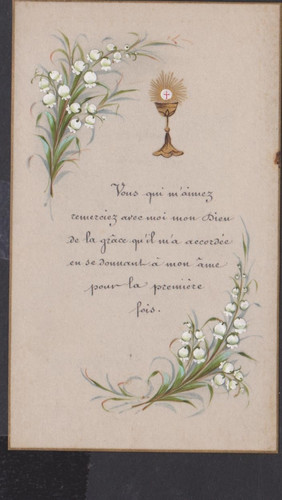 Vous qui m'aimez
remerciez avec moi mon Dieu
de la grâce qu'il m'a accordée
en se donnant à mon âme
pour la première
fois.